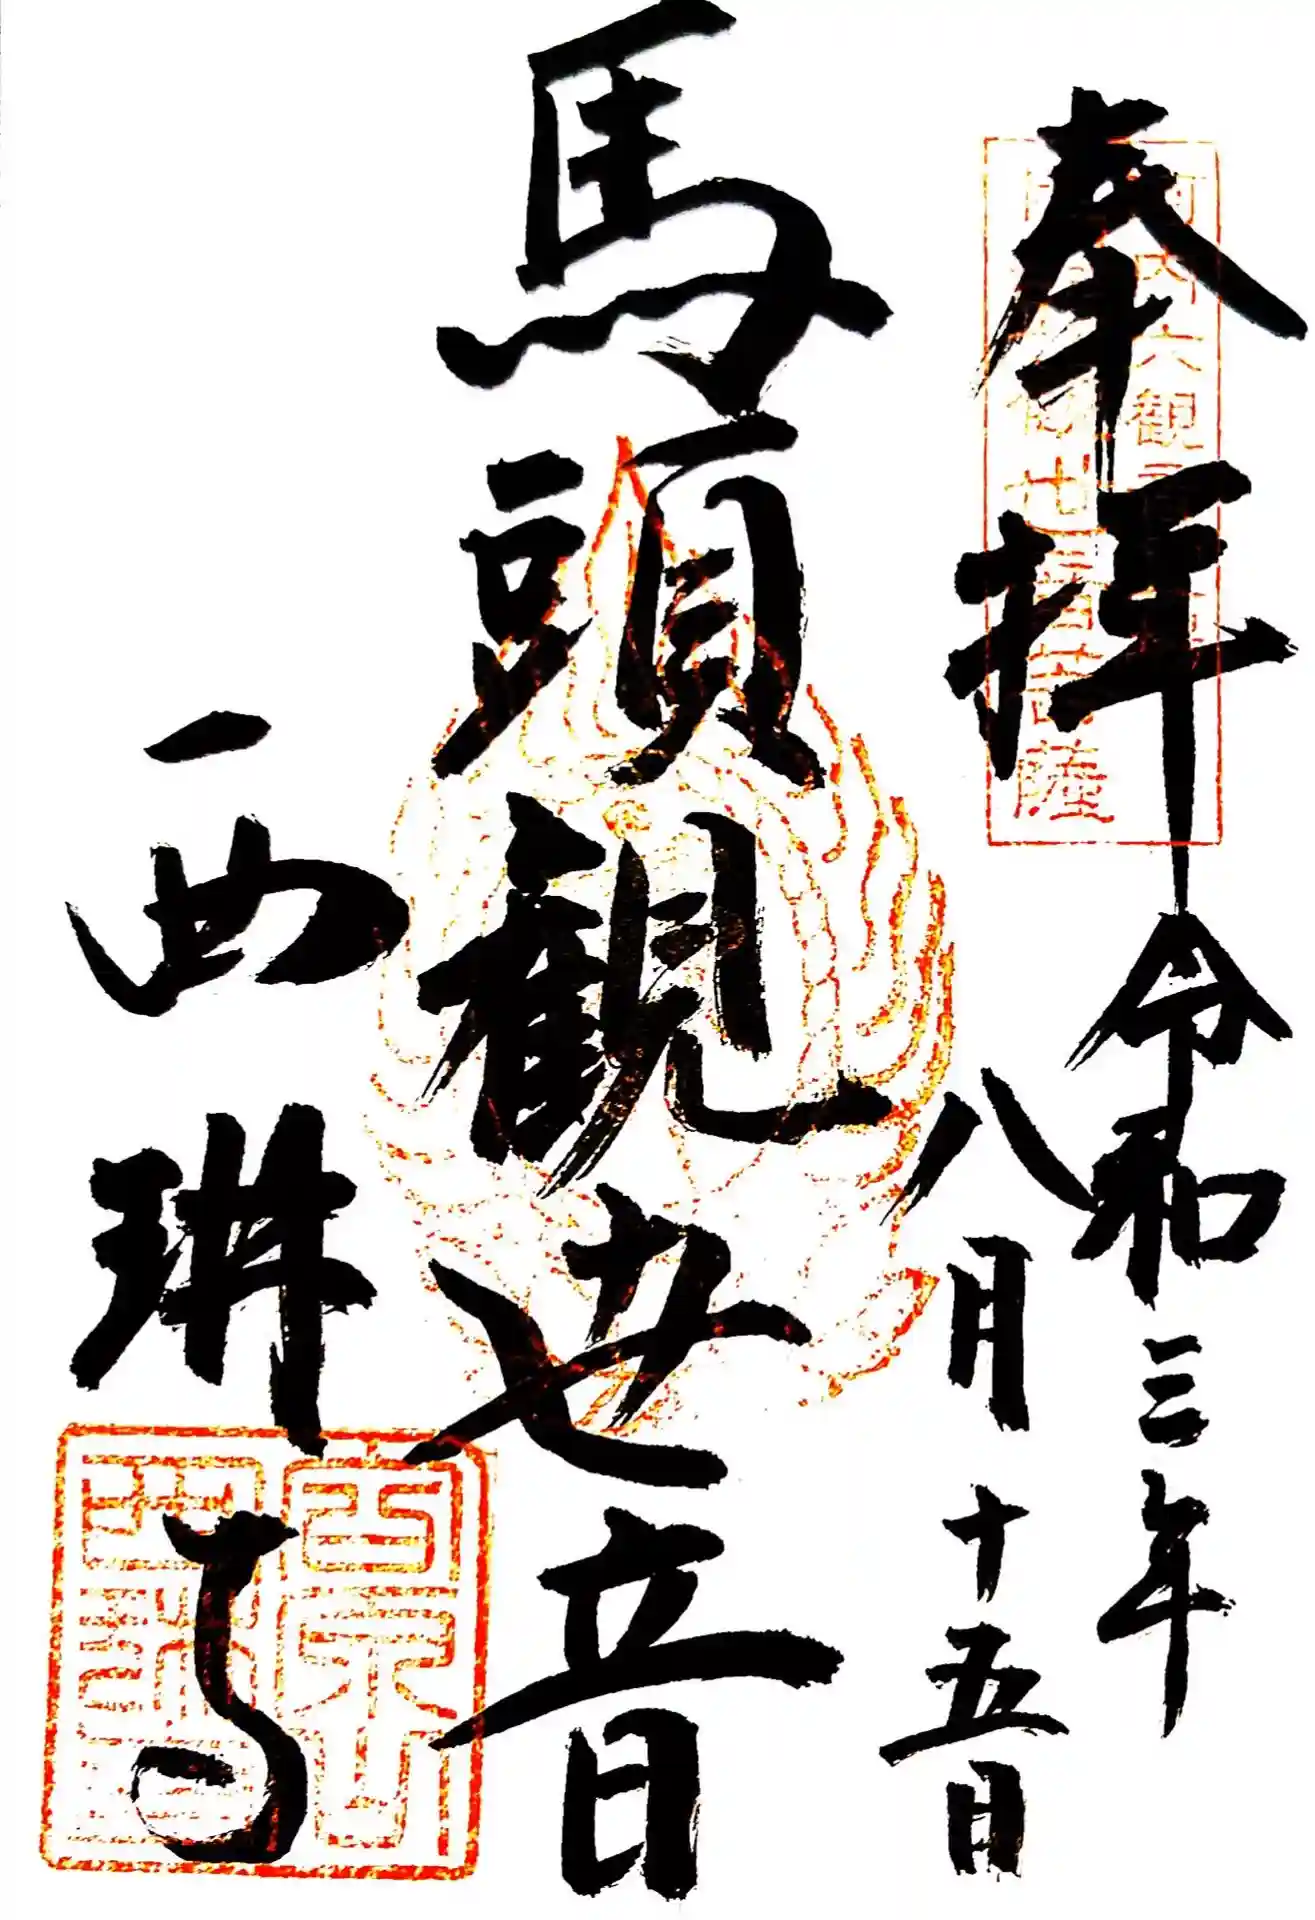 奉拝
令和三年
八月十五日
馬頭観世音
西琳寺
河内六観
世音菩薩